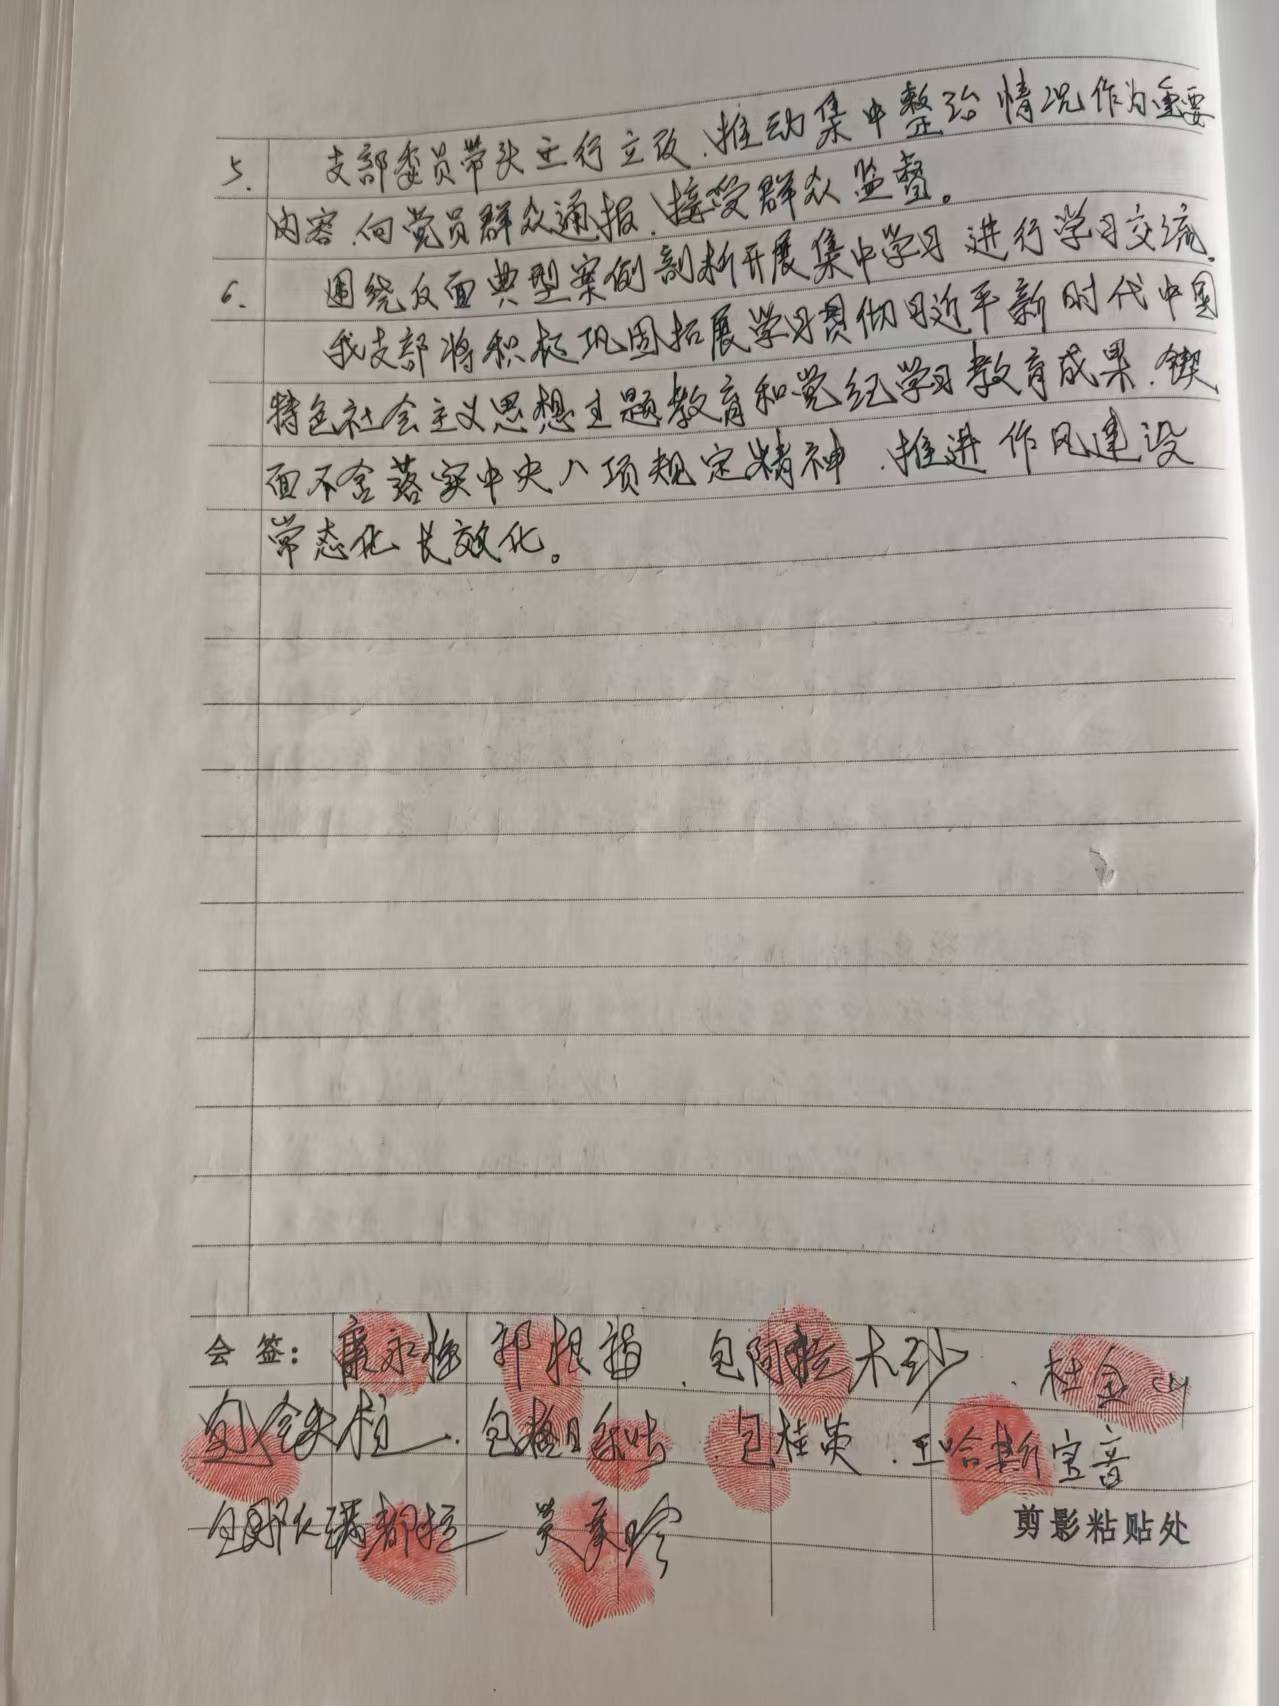 5. 支部委员带头立行立改、推动集中整治情况作为重要
内容、向党员群众通报、接受群众监督。
6. 围绕反面典型案例剖析开展集中学习 进行学习交流。
我支部将积极巩固拓展学习贯彻习近平新时代中国
特色社会主义思想主题教育和党纪学习教育成果、锲
而不舍落实中央八项规定精神、推进作风建设
常态化 长效化。
会 签: 郭根 包阿拉木 杜金山
包 包格日 包桂英 王哈斯宝音
包 满都拉
剪影粘贴处